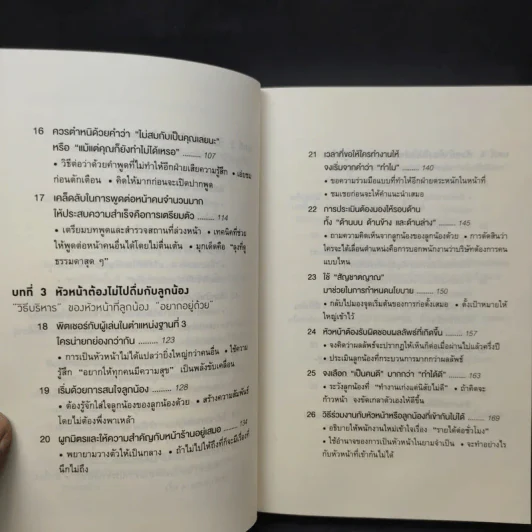 16 ควรตำหนิด้วยคำว่า "ไม่สมกับเป็นคุณเลยนะ"
หรือ "แม้แต่คุณก็ยังทำไม่ได้เหรอ" ......... 107
• วิธีต่อว่าด้วยคำพูดที่ไม่ทำให้อีกฝ่ายเสียความรู้สึก •
ก่อนตักเตือน • คิดให้มากก่อนจะเปิดปากพูด
17 เคล็ดลับในการพูดต่อหน้าคนจำนวนมาก
ให้ประสบความสำเร็จคือการเตรียมตัว ......... 114
• เตรียมบทพูดและสำรวจสถานที่ล่วงหน้า • เทคนิคที่ช่วย
ให้พูดต่อหน้าคนอื่นได้โดยไม่ตื่นเต้น • มุกเด็ดคือ "ลุงที่ดู
ธรรมดาสุด ๆ"
บทที่ 3 หัวหน้าต้องไม่ไปดื่มกับลูกน้อง
"วิธีบริหาร" ของหัวหน้าที่ลูกน้อง "อยากอยู่ด้วย"
18 พิตเชอร์กับผู้เล่นในตำแหน่งฐานที่ 3
ใครน่ายกย่องกว่ากัน ......... 123
• การเป็นหัวหน้าไม่ได้แปลว่ายิ่งใหญ่กว่าคนอื่น • ใช้ความ
รู้สึก "อยากให้ทุกคนมีความสุข" เป็นพลังขับเคลื่อน
19 เริ่มด้วยการสนใจลูกน้อง ......... 128
• ต้องรู้จักใส่ใจลูกน้องของลูกน้องด้วย • สร้างความสัมพันธ์
โดยไม่ต้องพึ่งพาเหล้า
20 ผูกมิตรและให้ความสำคัญกับหน้าร้านอยู่เสมอ ......... 134
• พยายามวางตัวให้เป็นกลาง • ถ้าไม่ไปให้ถึงที่ก็จะมีเรื่องที่
นึกไม่ถึง
21 เวลาที่ขอให้ใครทำงานให้
จงเริ่มจากคำว่า "ทำไม" ......... 140
• ขอความร่วมมือแบบที่ทำให้อีกฝ่ายตระหนักในหน้าที่
• ชมเชยก่อนจะให้คำแนะนำเสมอ
22 การประเมินต้องมองให้รอบด้าน
ทั้ง "ด้านบน ด้านข้าง และด้านล่าง" ......... 145
• ถามความคิดเห็นจากลูกน้องของลูกน้องด้วย • การตัดสินว่า
ใครจะได้เลื่อนตำแหน่งคือการบอกพนักงานว่าบริษัทต้องการคน
แบบไหน
23 ใช้ "สัญชาตญาณ"
มาช่วยในการกำหนดนโยบาย ......... 151
• กลับไปมองจุดเริ่มต้นของการก่อตั้งเสมอ • ตั้งเป้าหมายให้
ใหญ่เข้าไว้
24 หัวหน้าต้องรับผิดชอบผลลัพธ์ที่เกิดขึ้น ......... 157
• จงคิดว่าผลลัพธ์จะปรากฏให้เห็นก็ต่อเมื่อผ่านไปแล้วครึ่งปี
• ประเมินลูกน้องที่กระบวนการมากกว่าผลลัพธ์
25 จงเลือก "เป็นคนดี" มากกว่า "ทำได้ดี" ......... 163
• ระวังลูกน้องที่ "ทำงานเก่งแต่นิสัยไม่ดี" • ถ้าคิดจะ
ก้าวหน้า จงขัดเกลาตัวเองให้ดีขึ้น
26 วิธีร่วมงานกับหัวหน้าหรือลูกน้องที่เข้ากันไม่ได้ ......... 169
• อธิบายให้พนักงานใหม่เข้าใจเรื่อง "รายได้ต่อชั่วโมง"
• ใช้อำนาจของการเป็นหัวหน้าในยามจำเป็น • จะทำอย่างไร
กับหัวหน้าที่เข้ากันไม่ได้